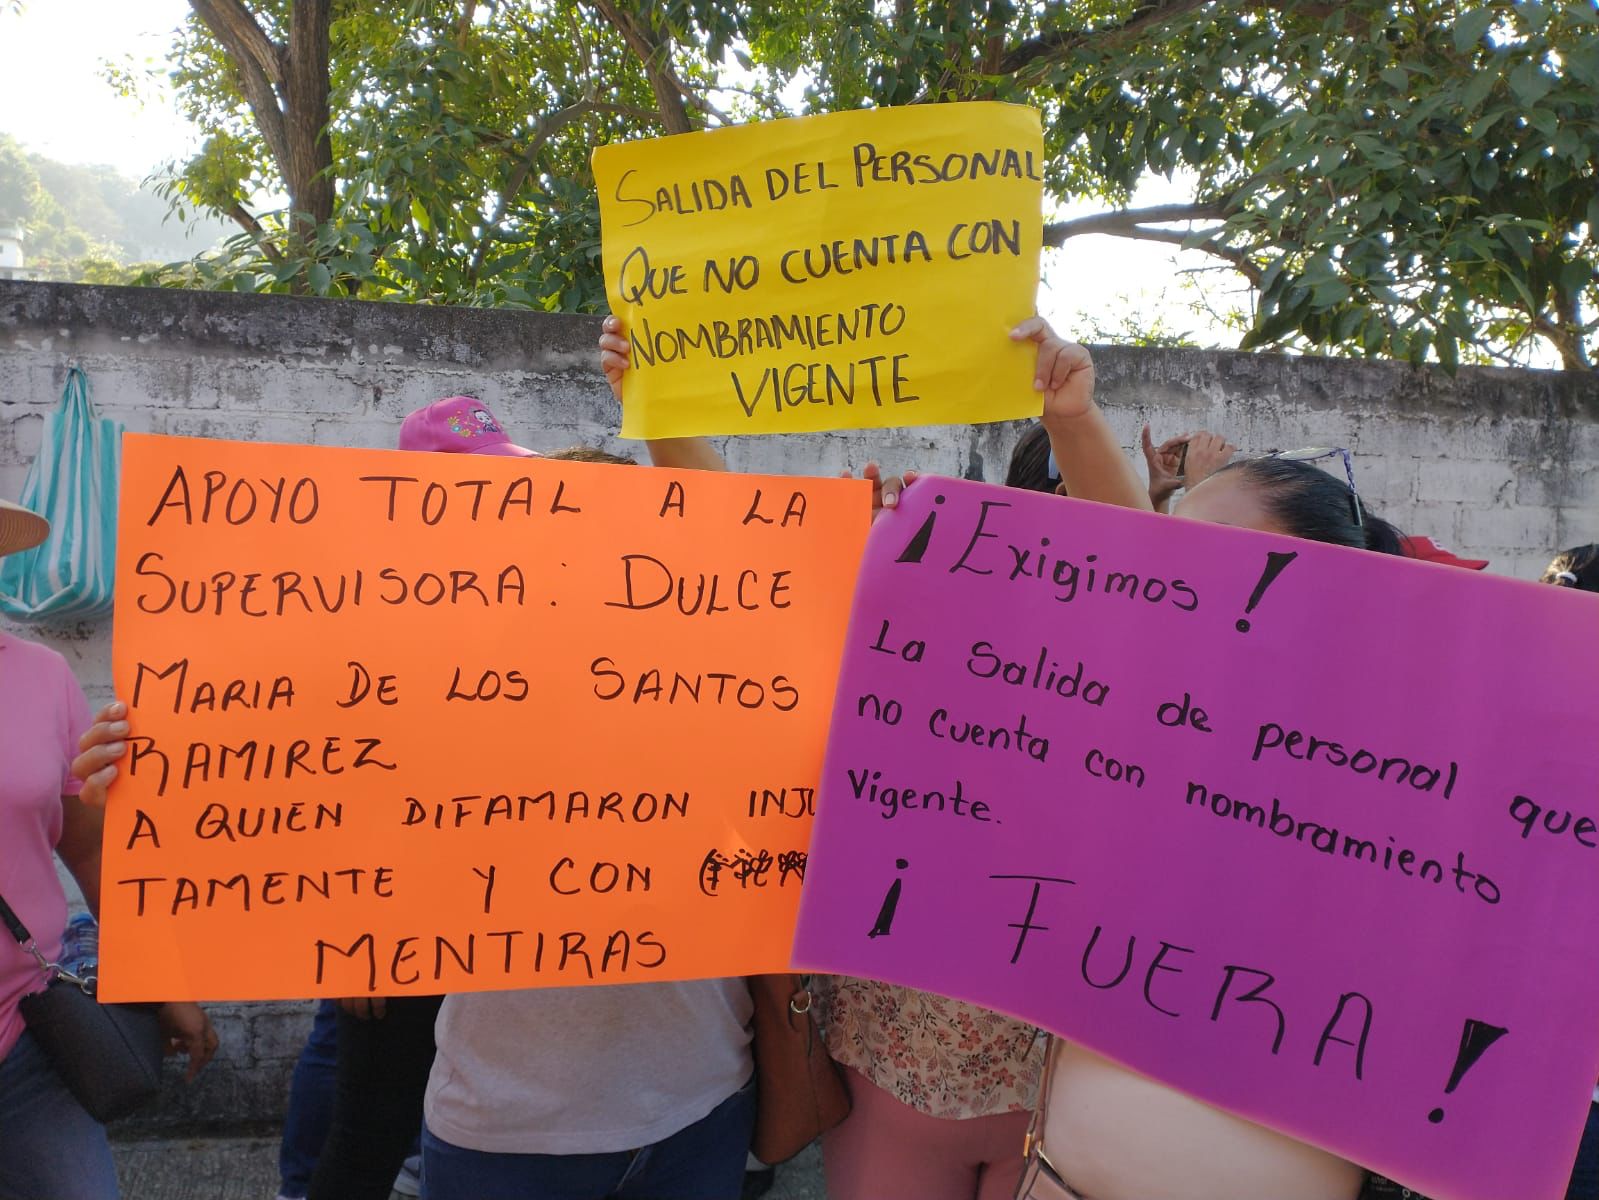 SALIDA DEL PERSONAL
QUE NO CUENTA CON
NOMBRAMIENTO
VIGENTE
APOYO TOTAL A LA
SUPERVISORA: DULCE
MARIA DE LOS SANTOS
RAMIREZ
A QUIEN DIFAMARON INJU
TAMENTE Y CON
MENTIRAS
¡Exigimos!
La Salida de personal que
no cuenta con nombramiento
Vigente.
¡FUERA!